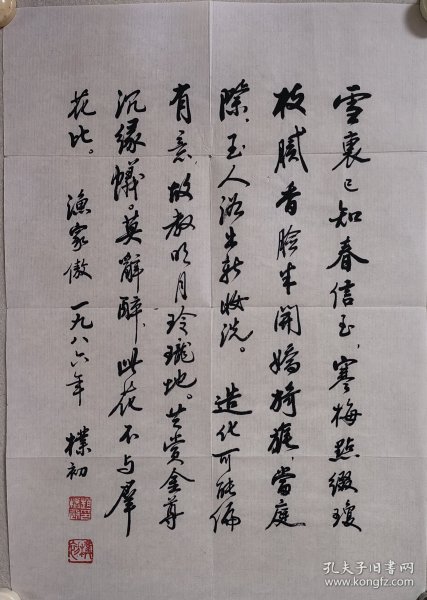 雪裏已知春信至，寒梅點綴瓊
枝膩香臉半開嬌旖旎，當庭
際，玉人浴出新妝洗。造化可能偏
有意，故教明月玲瓏地。共賞金尊
沉緑蟻。莫辭醉，此花不与羣
花比。漁家傲 一九八六年 樸初
孔夫子旧书网
www.kongfz.com